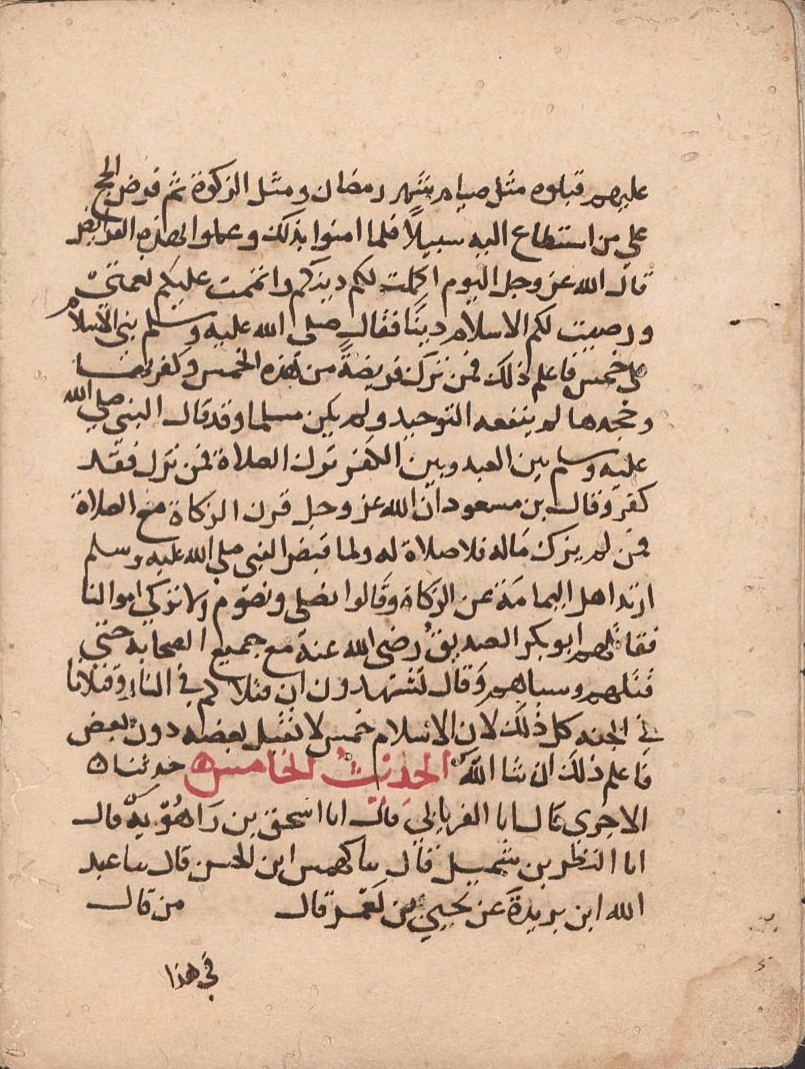 عليهم قبلوه مثل صيام شهر رمضان ومثل الزكوة ثم فرض الحج
على من استطاع اليه سبيلاً فلما امنوا بذلك وعملوا بهذه الفرايض
قال الله عز وجل اليوم اكملت لكم دينكم واتممت عليكم نعمتي
ورضيت لكم الاسلام ديناً فقال صلى الله عليه وسلم بنى الاسلام
على خمس فاعلم ذلك فمن ترك فريضةً من هذه الخمس وكفر بها
وجحدها لم ينفعه التوحيد ولم يكن مسلما وقد قال النبي صلى الله
عليه وسلم بين العبد وبين الكفر ترك الصلاة فمن ترك فقد
كفر وقال بن مسعود ان الله عز وجل قرن الزكاة مع الصلاة
فمن لم يزك ماله فلا صلاة له ولما قبض النبي صلى الله عليه وسلم
ارتد اهل اليمامة عن الزكاة وقالوا نصلى ونصوم ولا نزكي اموالنا
فقاتلهم ابو بكر الصديق رضى الله عنه مع جميع الصحابة حتى
قتلهم وسباهم وقال تشهدون ان قتلاكم في النار وقتلانا
في الجنه كل ذلك لان الاسلام خمس لا تقبل بعضه دون بعض
فاعلم ذلك ان شا الله الحديث الخامس حدثنا
الاجرى قال ابا الفريابي قال ابا اسحق بن راهويه قال
ابا النظر بن شميل قال سا كهمس ابن الحسن قال سا عبد
الله ابن بريدة عن يحيي بن يعمر قال من قال
في هذا